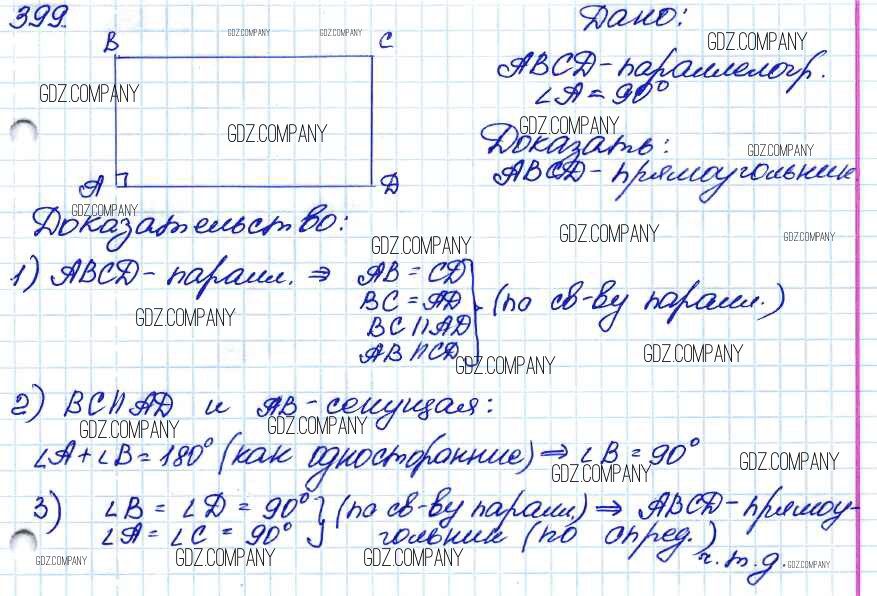 399.
Дано:
GDZ.COMPANY GDZ.COMPANY
B C
GDZ.COMPANY
ABCD - параллелогр.
∠A = 90°
GDZ.COMPANY
GDZ.COMPANY GDZ.COMPANY
Доказать:
GDZ.COMPANY
ABCD - прямоугольник
A D
GDZ.COMPANY
Доказательство:
GDZ.COMPANY GDZ.COMPANY GDZ.COMPANY
1) ABCD - паралл. ⇒ AB = CD
BC = AD (по св-ву паралл.)
BC II AD
AB II CD
GDZ.COMPANY
GDZ.COMPANY GDZ.COMPANY
2) BC II AD и AB - секущая:
GDZ.COMPANY GDZ.COMPANY
∠A + ∠B = 180° (как односторанние) ⇒ ∠B = 90°
GDZ.COMPANY GDZ.COMPANY
3) ∠B = ∠D = 90° } (по св-ву паралл.) ⇒ ABCD - прямоу-
GDZ.COMPANY GDZ.COMPANY
∠A = ∠C = 90° гольник (по опред.)
ч.т.д.
GDZ.COMPANY GDZ.COMPANY GDZ.COMPANY GDZ.COMPANY